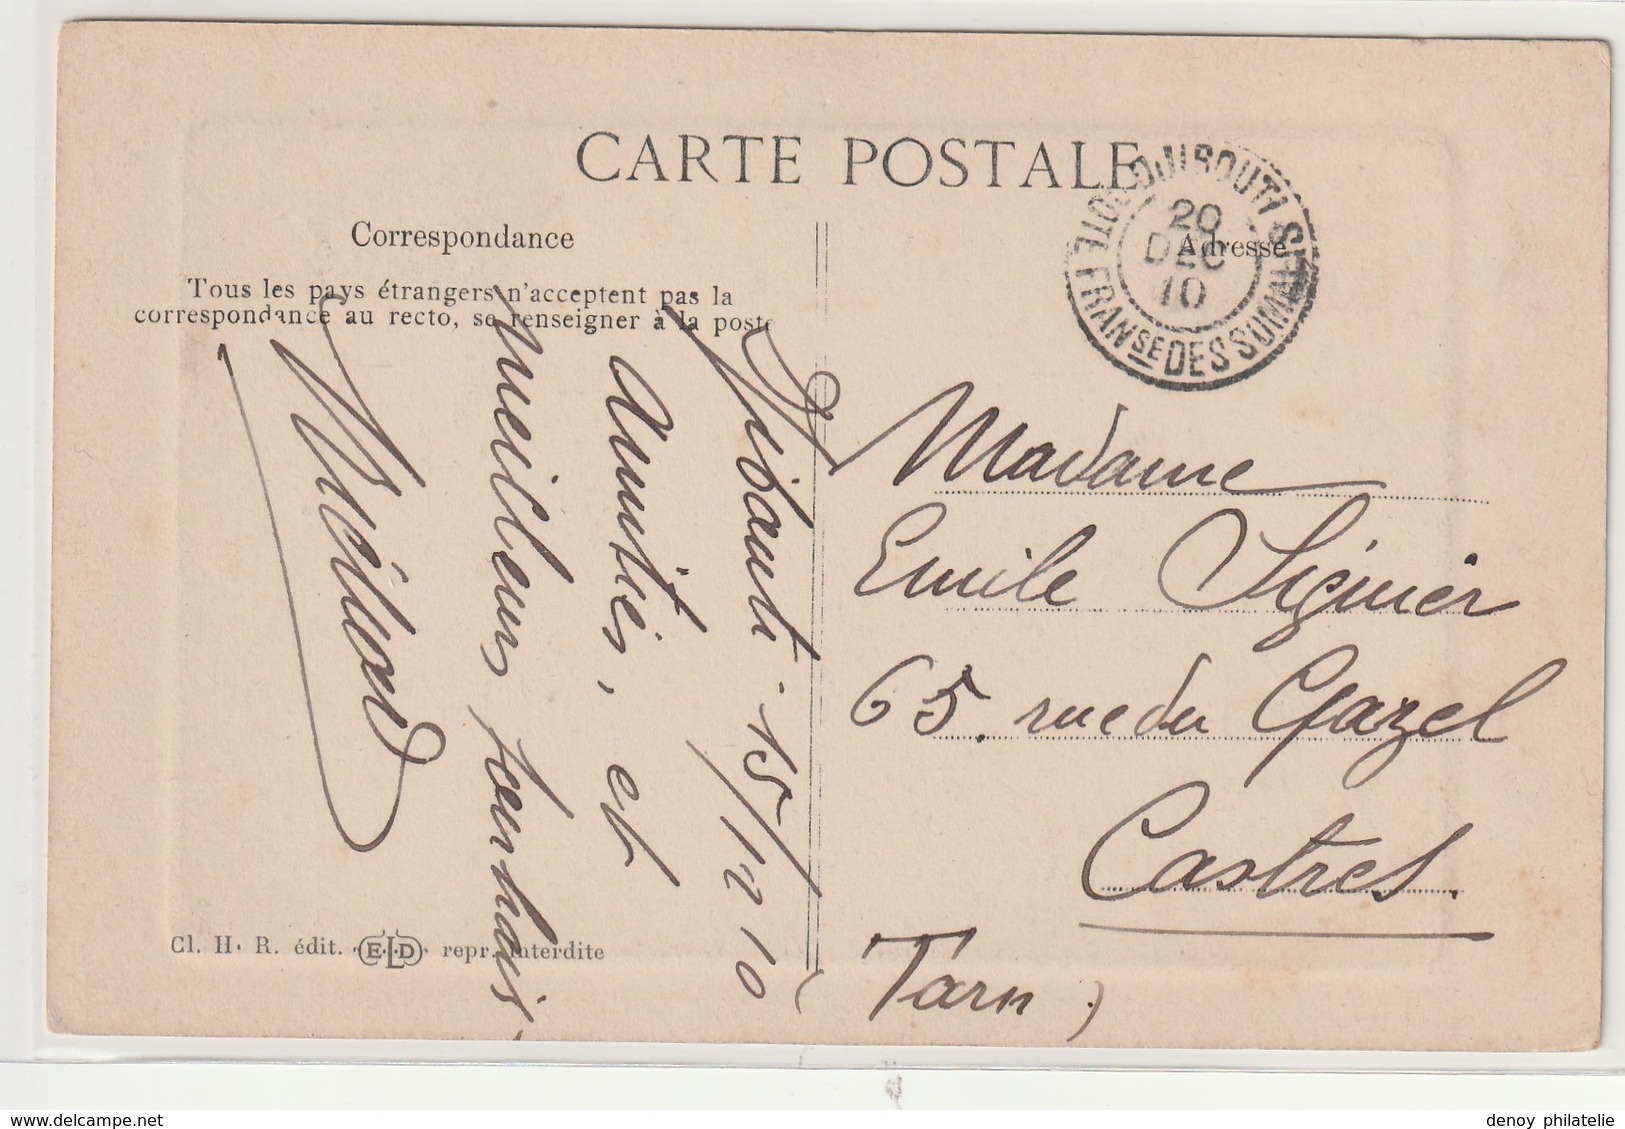 CARTE POSTALE
Correspondance
Tous les pays étrangers n'acceptent pas la
correspondance au recto, se renseigner à la poste
Adresse
DJIBOUTI
20
DEC
10
CÔTE FRANSE DES SOMALIS
Djibouti 15/12 10
Amitiés, et
meilleurs souhaits
Madame
Emile Siguier
65, rue du Gazel
Castres.
(Tarn)
Cl. H. R. édit. E.L.D repr. interdite
denoy philatelie